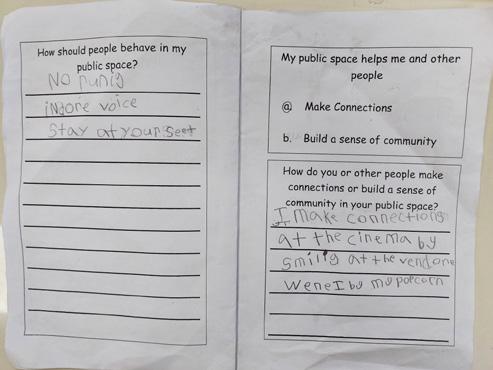 How should people behave in my
public space?
No runig
indore voice
Stay at your seet
My public space helps me and other
people
a. Make Connections
b. Build a sense of community
How do you or other people make
connections or build a sense of
community in your public space?
I make connections
at the cinema by
smilig at the vendore
wene I by my popcorn